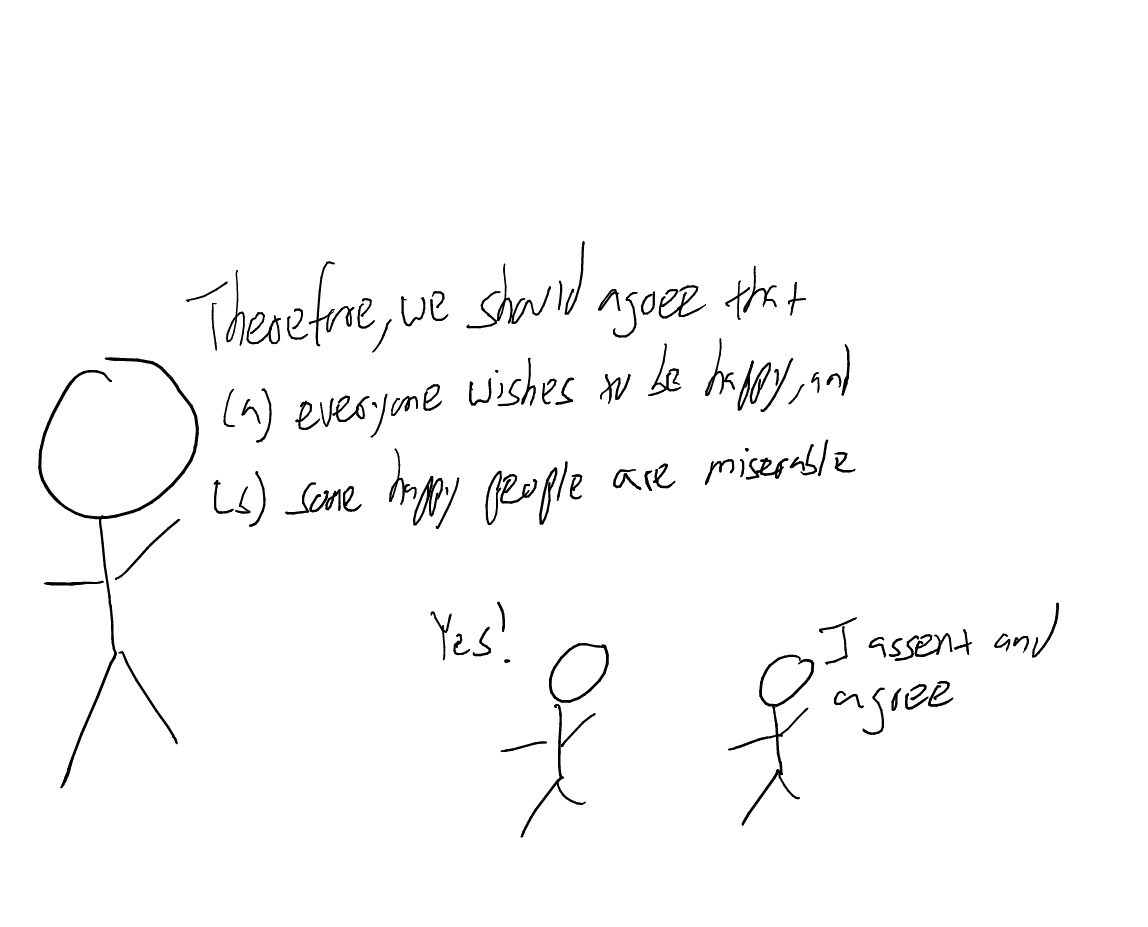 Therefore, we should agree that
(a) everyone wishes to be happy, and
(s) some happy people are miserable
Yes!
I assent and
agree